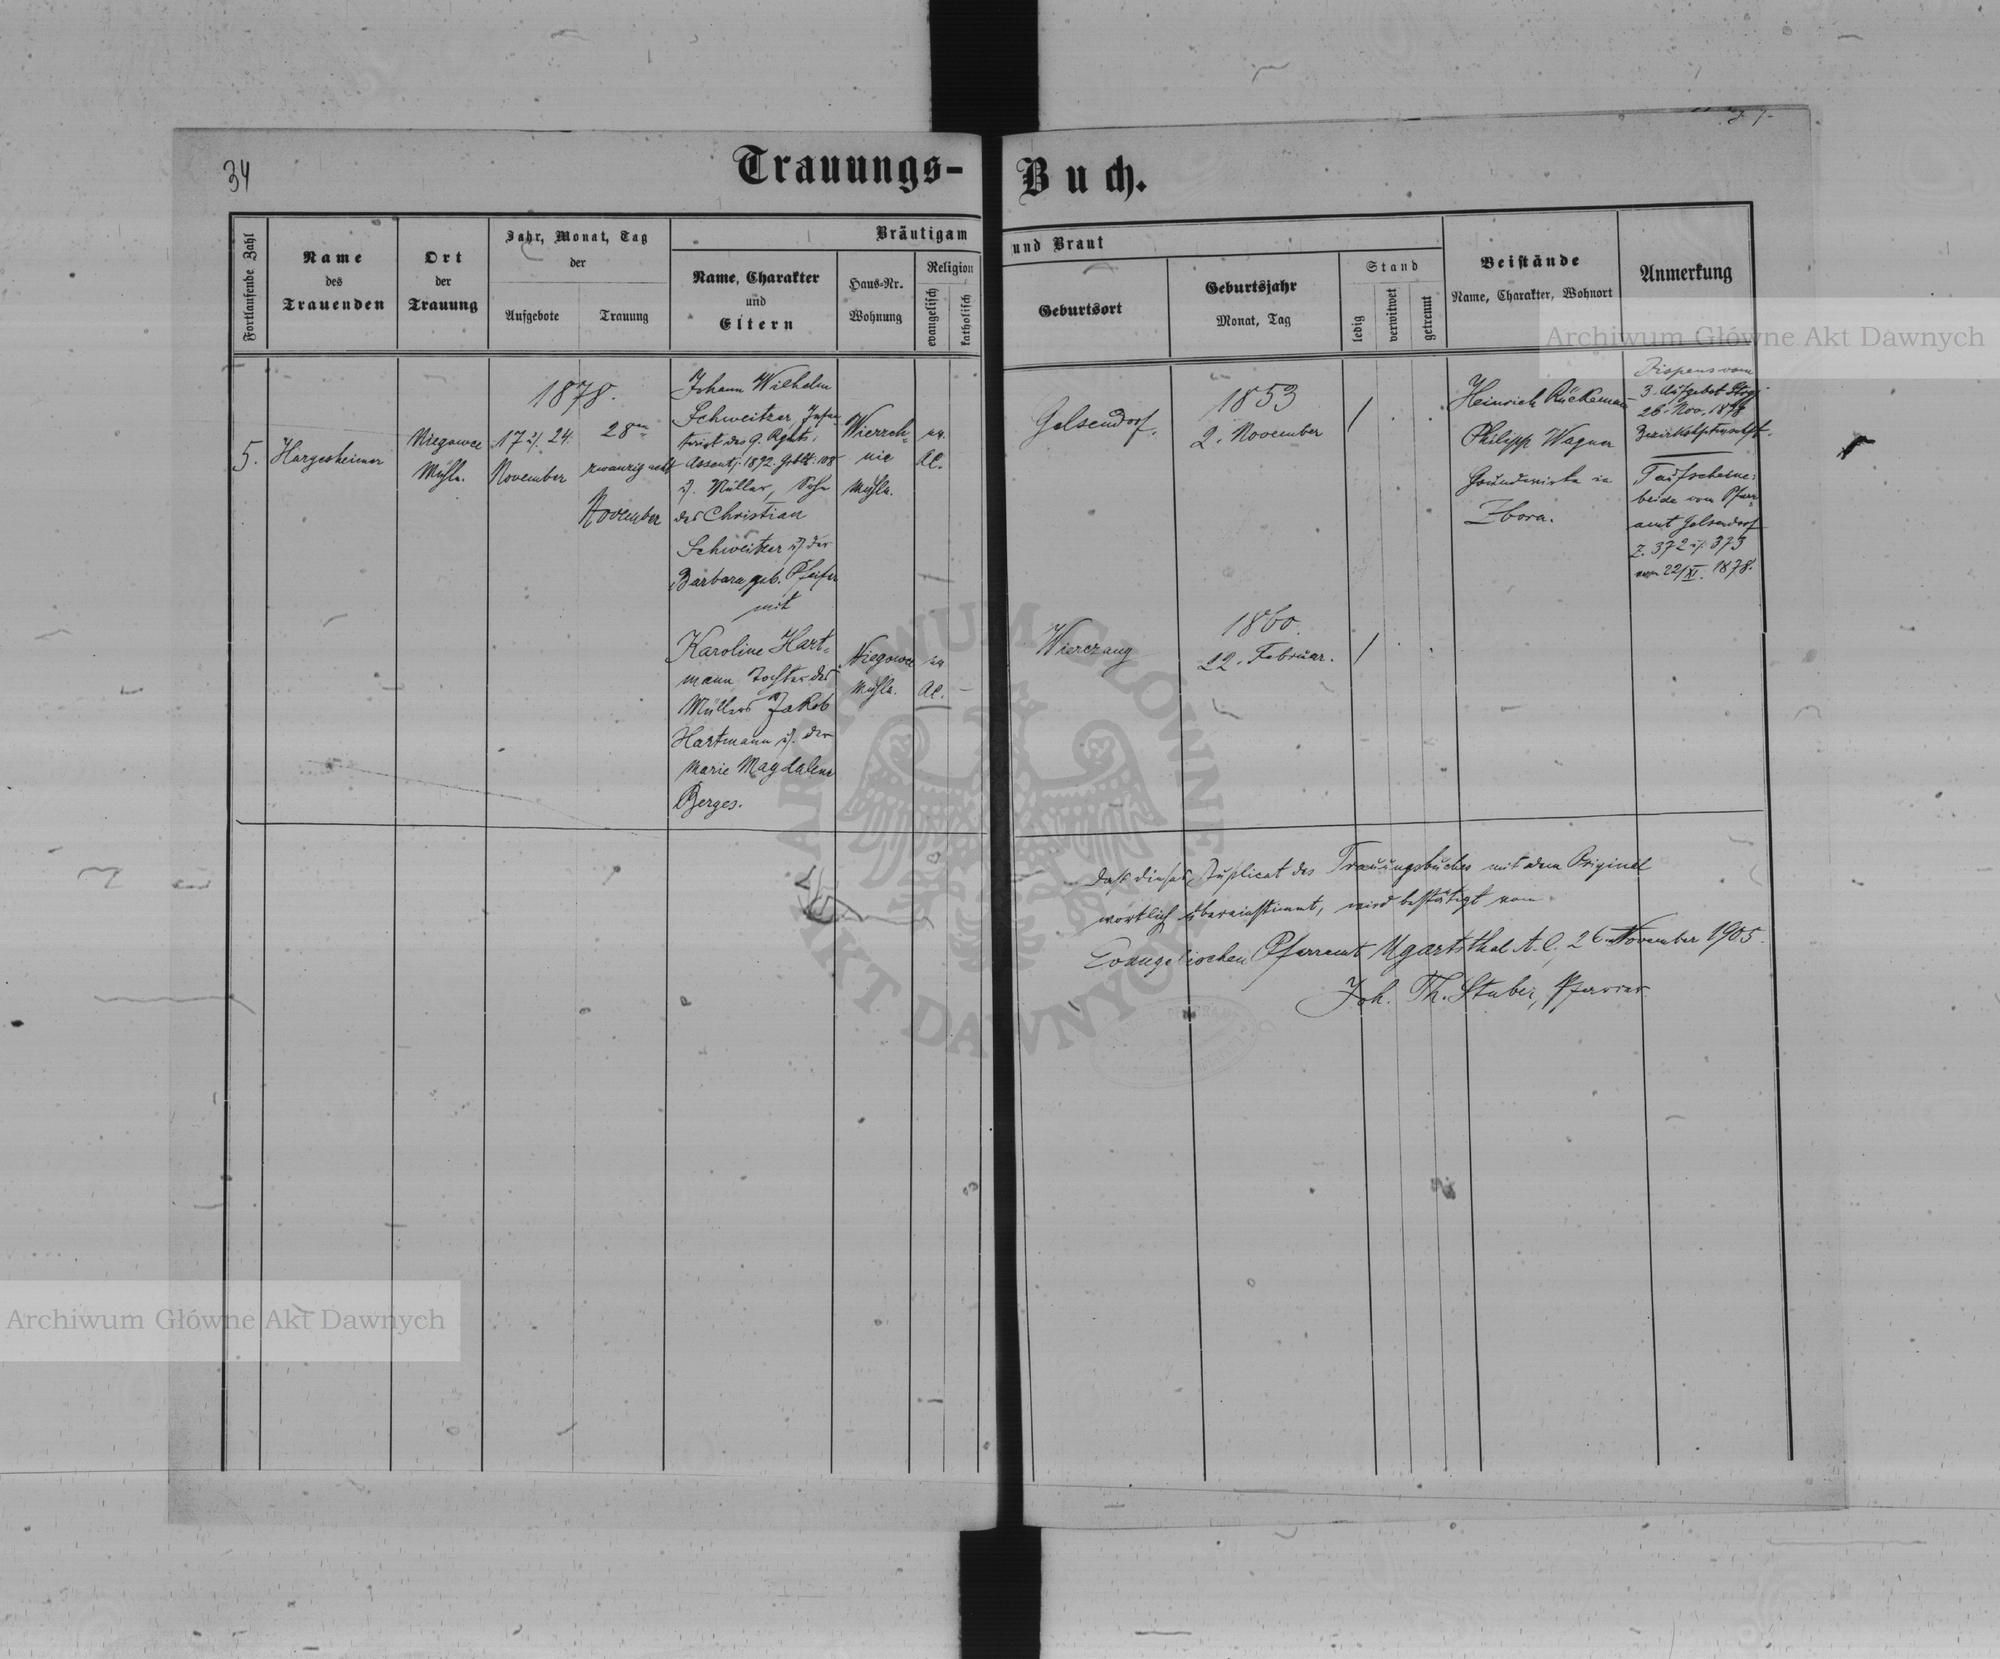 34
Trauungs-
Buch.
Fortlaufende Zahl
Name
des
Trauenden
Ort
der
Trauung
Jahr, Monat, Tag
der
Aufgebote
Trauung
Bräutigam
und Braut
Name, Charakter
und
Eltern
Haus-Nr.
Wohnung
Religion
evangelisch
katholisch
Geburtsort
Geburtsjahr
Monat, Tag
Stand
ledig
verwitwet
getrennt
Beistände
Name, Charakter, Wohnort
Anmerkung
5.
Hargesheimer
Niegowce
Mühle.
1878.
17 u. 24.
November
28
zwanzig acht
November
Johann Wilhelm
Schweitzer, Infan
terist des 9. Rgts,
Assentj: 1892. Grbblt: 108
u. Müller, Sohn
des Christian
Schweitzer u. der
Barbara geb. Pfeifer
mit
Karoline Hart-
mann Tochter des
Müllers Jakob
Hartmann u. der
Marie Magdalena
Berges.
Wierzch-
nie
Mühle.
ev.
AC.
Niegowce
Mühle.
ev
AC.
Gelsendorf.
1853
2. November
Wierczany
1860.
22. Februar.
Heinrich Rückemann
Philipp Wagner
Grundwirte in
Zbora.
Dispens vom
3. Aufgebot Stryj
26. Nov. 1878
Bezirkshptmschft.
Taufscheine:
beide vom Pfarr-
amt Gelsendorf
Z. 372 u. 373
vom 22/XI. 1878.
Daß dieses Duplicat des Trauungsbuches mit dem Original
wörtlich übereinstimmt, wird bestätigt vom
Evangelischen Pfarramt Ugartsthal A. C., 26. November 1905.
Joh. Th. Stuber, Pfarrer.
Archiwum Główne Akt Dawnych
Archiwum Główne Akt Dawnych
ARCHIWUM GŁÓWNE
AKT DAWNYCH